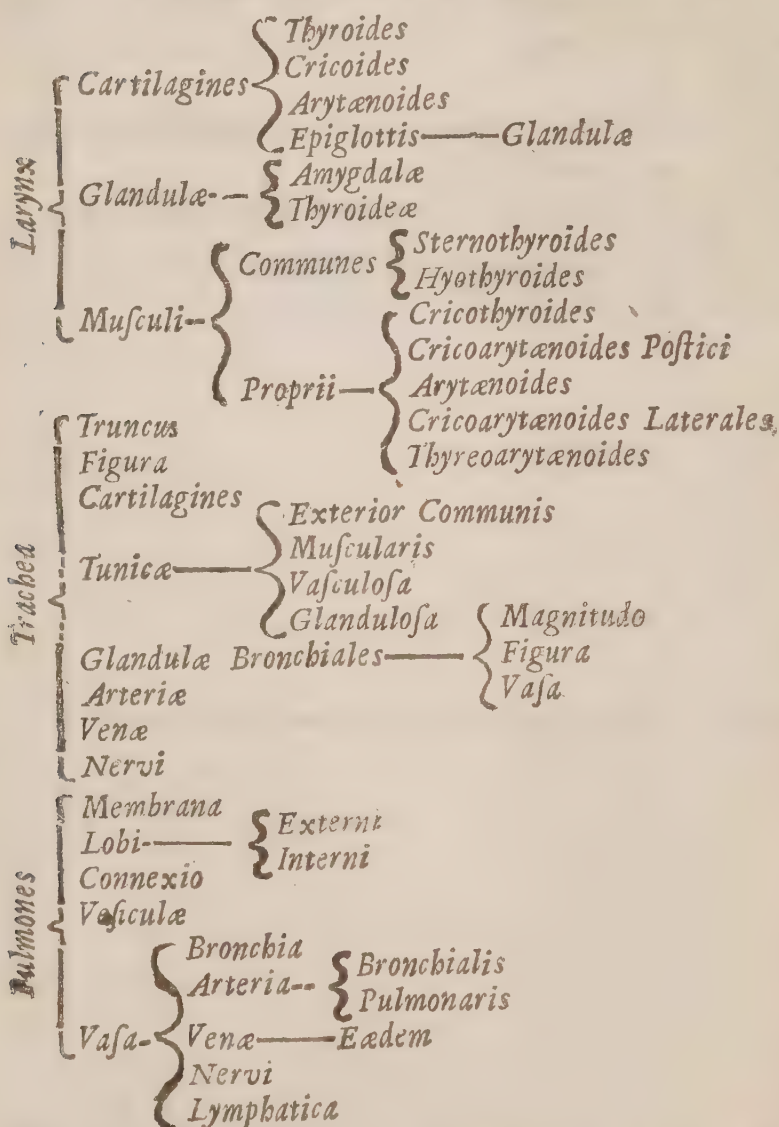 Larynx
Cartilagines
Thyroides
Cricoides
Arytænoides
Epiglottis——Glandulæ
Glandulæ--
Amygdalæ
Thyroideæ
Muſculi--
Communes
Sternothyroides
Hyothyroides
Proprii—
Cricothyroides
Cricoarytænoides Poſtici
Arytænoides
Cricoarytænoides Laterales,
Thyreoarytænoides
Trachea
Truncus
Figura
Cartilagines
Tunicæ——
Exterior Communis
Muſcularis
Vaſculoſa
Glanduloſa
Glandulæ Bronchiales——
Magnitudo
Figura
Vaſa
Arteriæ
Venæ
Nervi
Pulmones
Membrana
Lobi-——
Externi
Interni
Connexio
Veſiculæ
Vaſa-
Bronchia
Arteria--
Bronchialis
Pulmonaris
Venæ——Eædem
Nervi
Lymphatica